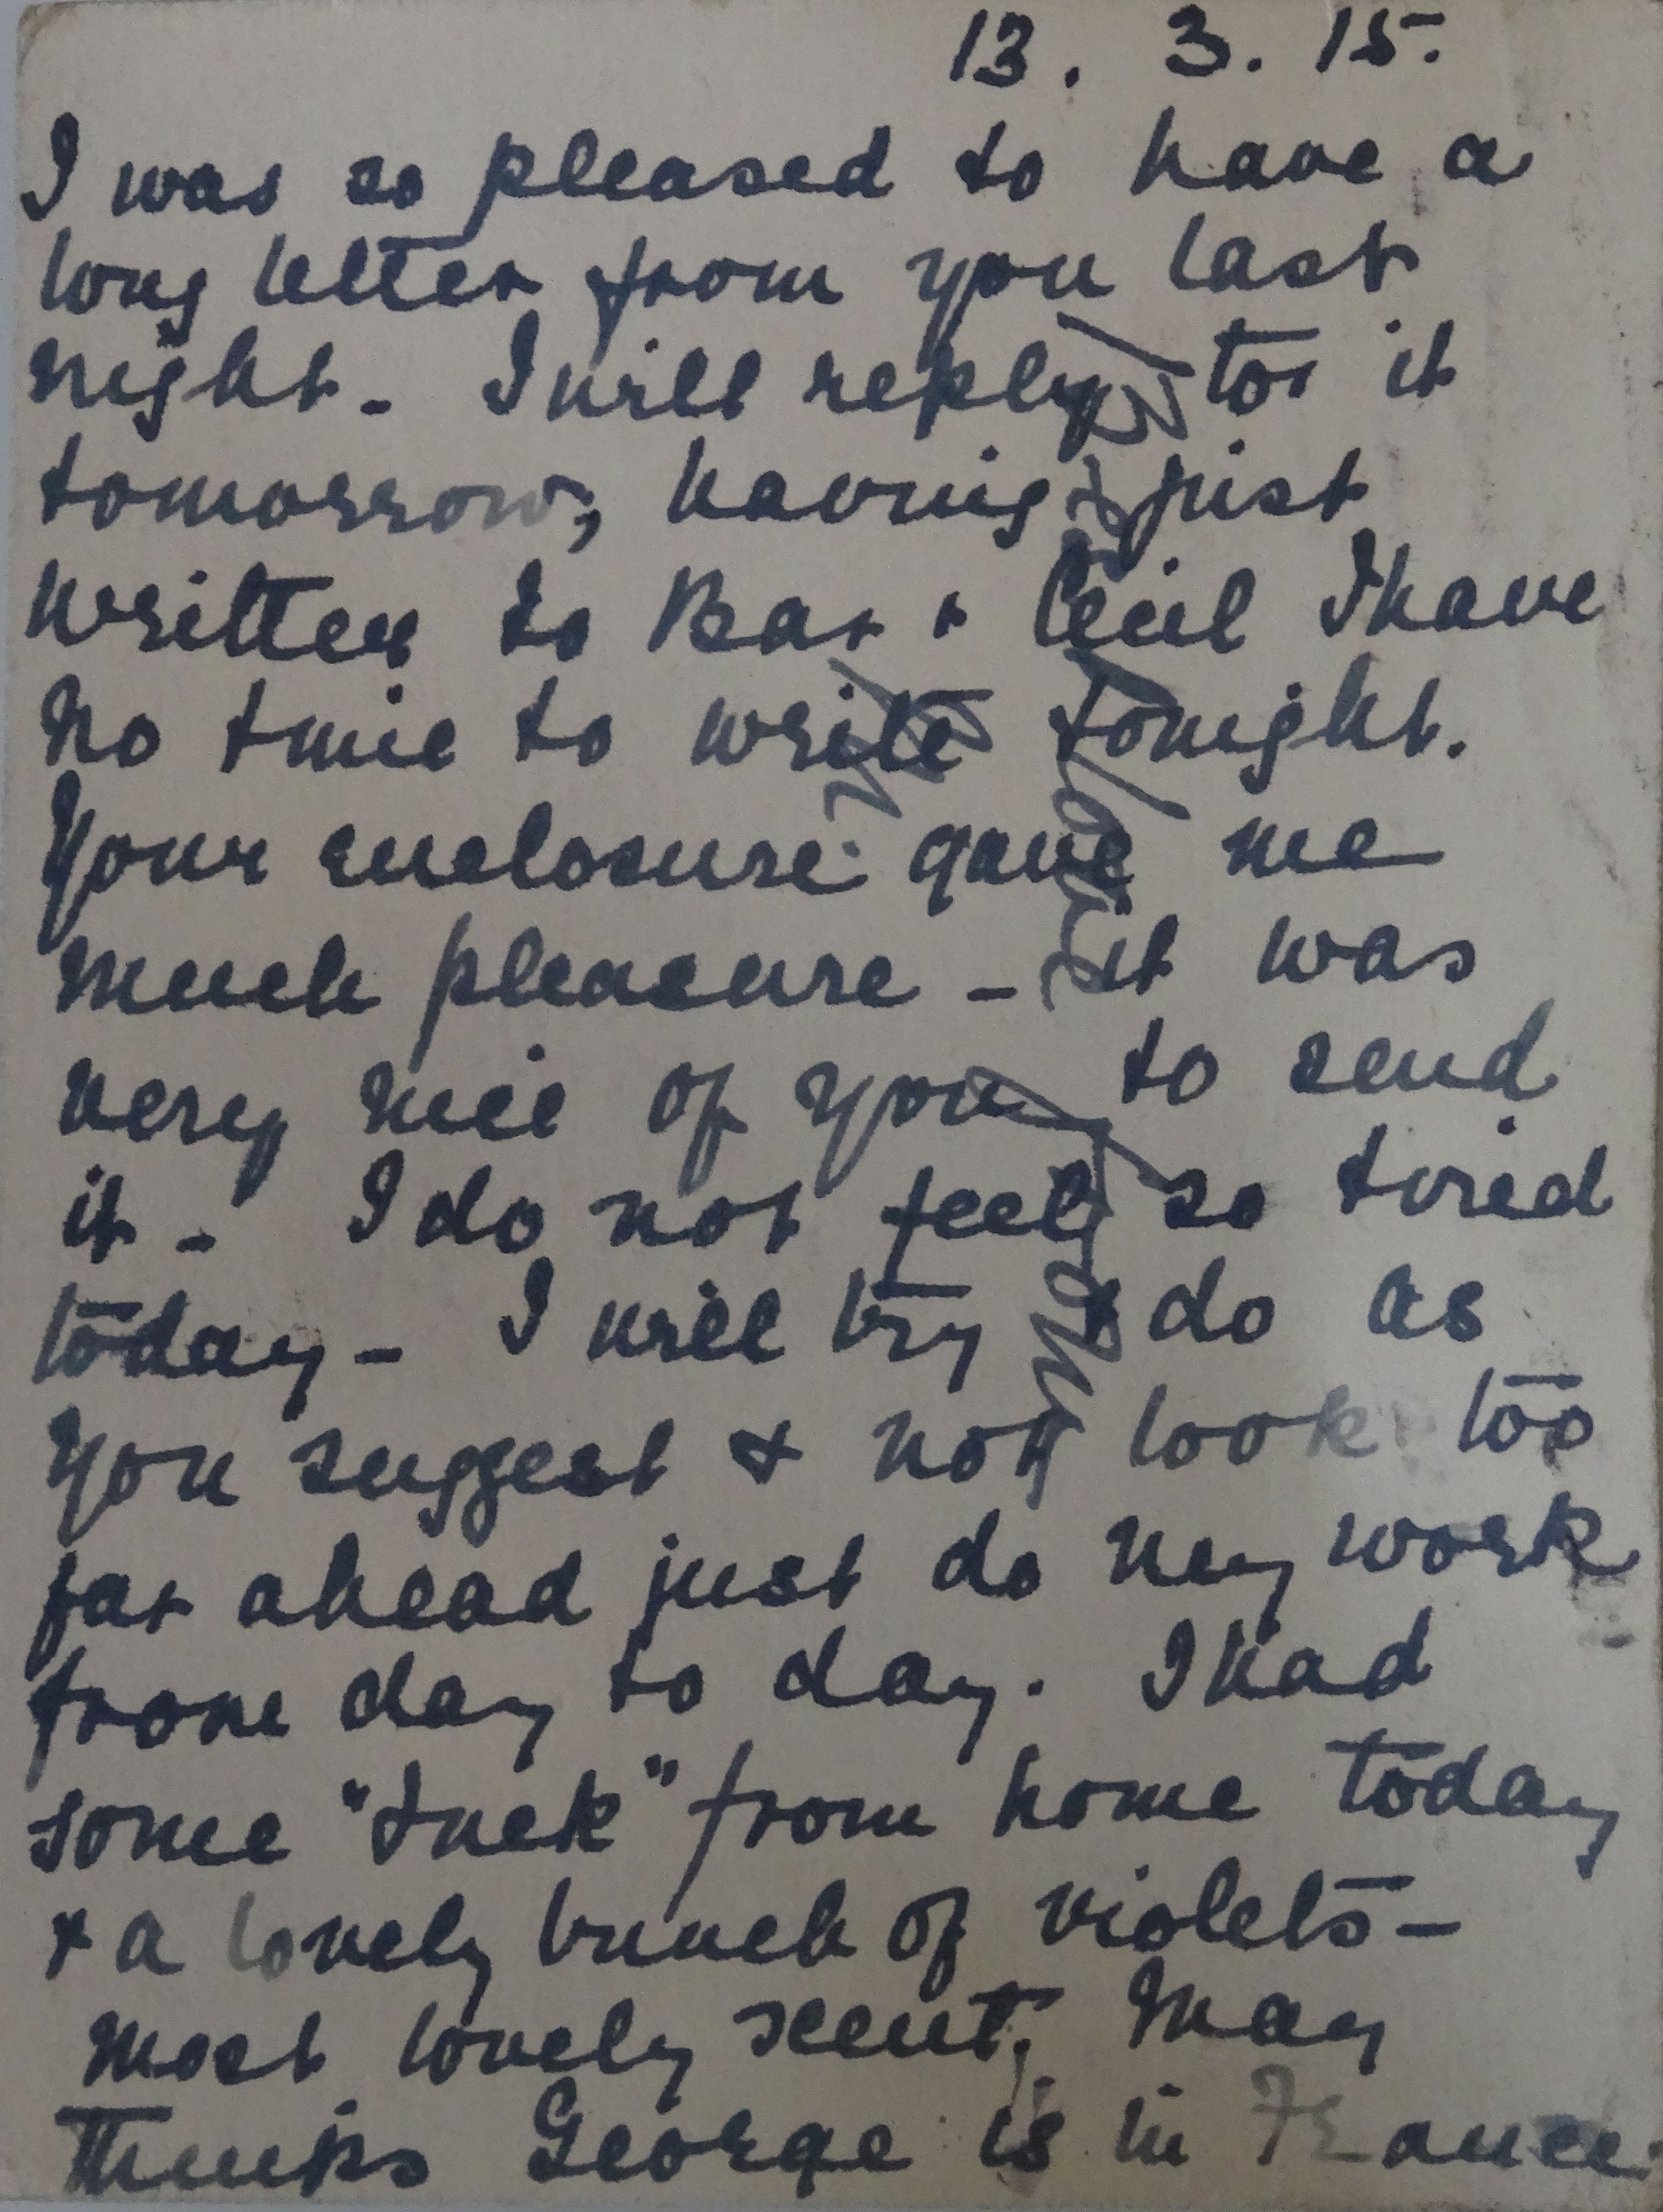 13. 3. 15.
I was so pleased to have a
long letter from you last
night. I will reply to it
tomorrow, having just
written to Bar + Cecil I have
no time to write tonight.
Your enclosure gave me
much pleasure - it was
very nice of you to send
it - I do not feel so tired
today - I will try & do as
you suggest & not look too
far ahead just do my work
from day to day. I had
some "tuck" from home today
& a lovely bunch of violets -
most lovely scent. May
thinks George is in France.